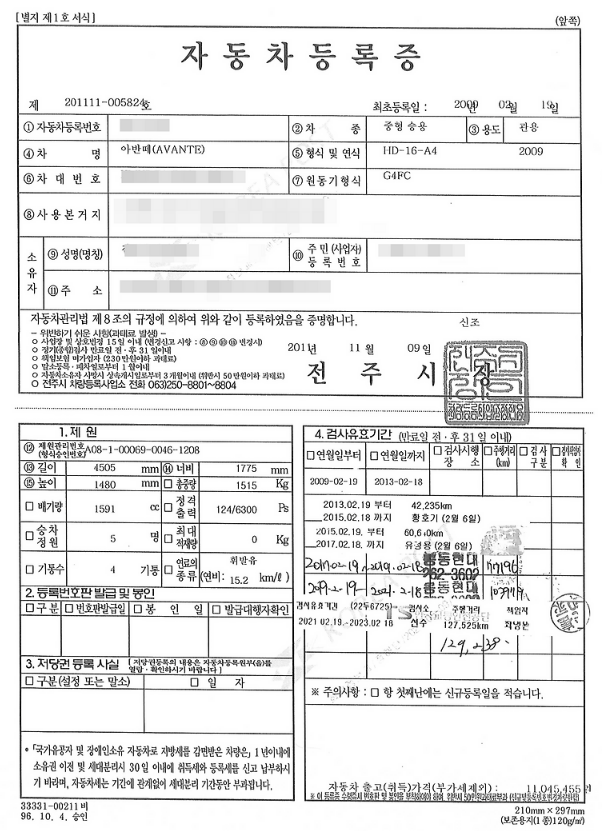 [별지 제1호 서식]
(앞쪽)
자 동 차 등 록 증
제 201111-005824호
최초등록일 : 2009년 02월 19일
① 자동차등록번호
② 차 종 중형 승용
③ 용도 관용
④ 차 명 아반떼(AVANTE)
⑤ 형식 및 연식 HD-16-A4 2009
⑥ 차 대 번 호
⑦ 원동기형식 G4FC
⑧ 사 용 본 거 지
소유자
⑨ 성명(명칭)
⑩ 주민(사업자)등록번호
⑪ 주 소
자동차관리법 제8조의 규정에 의하여 위와 같이 등록하였음을 증명합니다.
신조
- 위반하기 쉬운 사항(과태료 발생) -
○ 사업장 및 상호변경 15일 이내 (변경신고 사항 : ⑧⑨⑩⑪ 변경시)
○ 정기(종합)검사 만료일 전·후 31일이내
○ 책임보험 미가입자 (230만원이하 과태료)
○ 말소등록 - 폐차일로부터 1월이내
○ 자동차소유자 사망시 상속개시일로부터 3개월이내 (위반시 50만원이하 과태료)
○ 전주시 차량등록사업소 전화 063)250-8801~8804
201 년 11 월 09 일
전 주 시 장
1. 제 원
⑫ 제원관리번호(형식승인번호) A08-1-00069-0046-1208
⑬ 길이 4505 mm ⑭ 너비 1775 mm
⑮ 높이 1480 mm 총중량 1515 Kg
배기량 1591 cc 정격출력 124/6300 Ps
승차정원 5 명 최대적재량 0 Kg
기통수 4 기통 연료의 종류 휘발유 (연비: 15.2 km/ℓ)
2. 등록번호판 발급 및 봉인
구 분 번호판발급일 봉 인 일 발급대행자확인
3. 저당권 등록 사실 [저당권등록의 내용은 자동차등록원부(을)를 열람·확인하시기 바랍니다]
구분(설정 또는 말소) 일 자
*「국가유공자 및 장애인소유 자동차로 지방세를 감면받은 차량은, 1년이내에
소유권 이전 및 세대분리시 30일 이내에 취득세와 등록세를 신고 납부하시
기 바라며, 자동차세는 기간에 관계없이 세대분리 기간동안 부과됩니다.
4. 검사유효기간 (만료일 전·후 31일 이내)
연월일부터 연월일까지 검사시행장소 주행거리(km) 검사구분
2009-02-19 2013-02-18
2013.02.19 부터 42,235km
2015.02.18 까지 황호기 (2월 6일)
2015.02.19. 부터
2017.02.18 까지 (2월 6일)
2017-02-19~2019.02-18 봉동현대 262-3602
2019-2-19~2021-2-18 봉동현대
검사유효기간 (22두6725) 검사소 주행거리 책임자
2021 02.19.-2023.02 18 전수 127,525km
129,238
※ 주의사항 : □ 항 첫째난에는 신규등록일을 적습니다.
자동차 출고(취득)가격(부가세제외): 11,045,455 원
33331-00211비
96. 10. 4. 승인
210mm × 297mm
(보존용지(1종)120g/㎡)